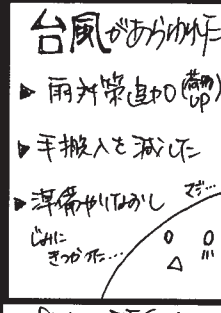 台風があらわれた
▶ 雨対策追加(荷物UP)
▶ 手搬入を減した
▶ 準備やりなおし
じみに
きつかった…
マジ…